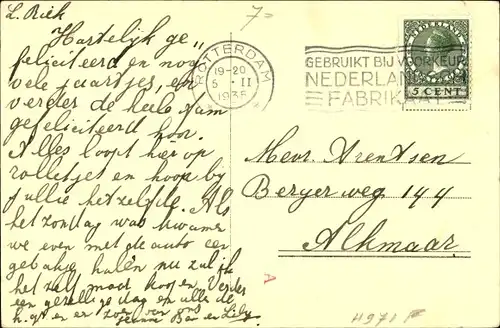 L. Riek
7=
Hartelijk ge„
feliciteerd en nog
vele jaartjes, en
verder de heele fam
gefeliciteerd hoor.
Alles loopt hier op
rolletjes en hoop bij
jullie hetzelfde. Als
het zondag was kwamen
we even met de auto een
gebakje halen nu zul ik
het zelf maar koopen. Verder
een gezellige dag en alle de
en Lily
ROTTERDAM
19-20
5 II
1935
GEBRUIKT BIJ VOORKEUR
NEDERLANDSCH
FABRIKAAT
NEDERLAND
5 CENT
Mevr. Arentsen
Bergerweg 144
Alkmaar.
A
H971 F